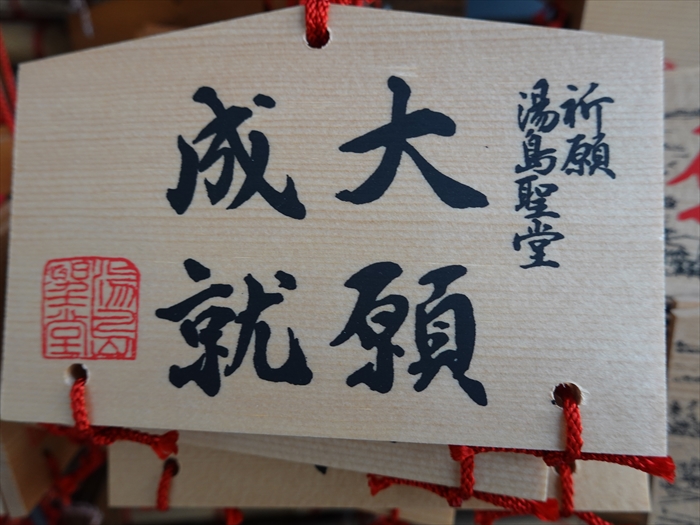 祈願
湯島聖堂
大願
成就
湯島
聖堂